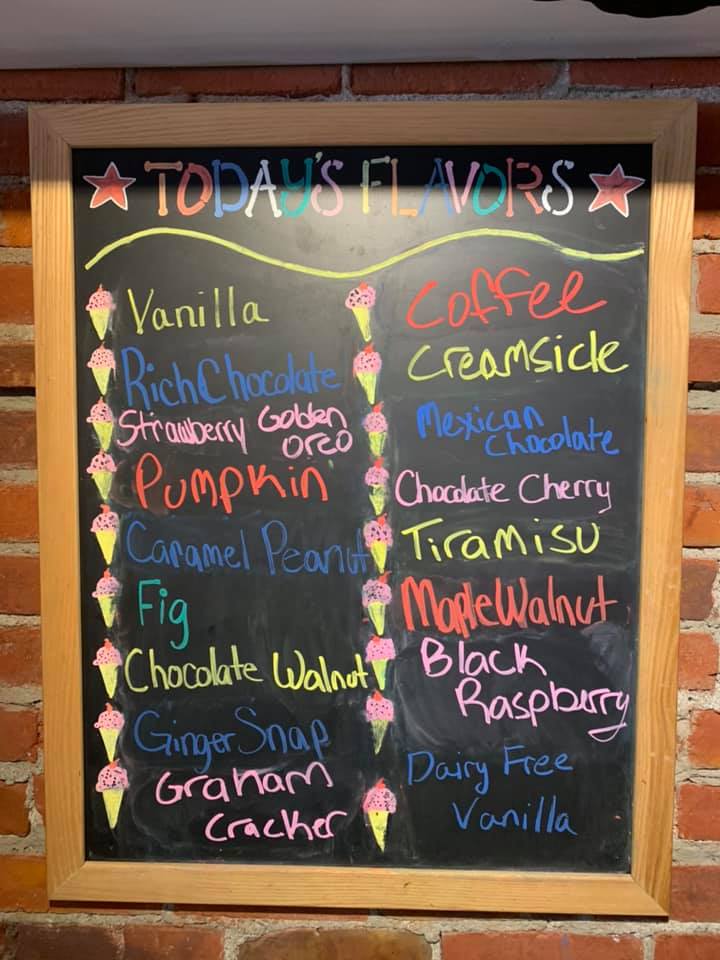 TODAY'S FLAVORS
Vanilla
Rich Chocolate
Strawberry Golden
Oreo
Pumpkin
Caramel Peanut
Fig
Chocolate Walnut
Ginger Snap
Graham
Cracker
Coffee
Creamsicle
Mexican
Chocolate
Chocolate Cherry
Tiramisu
Maple Walnut
Black
Raspberry
Dairy Free
Vanilla